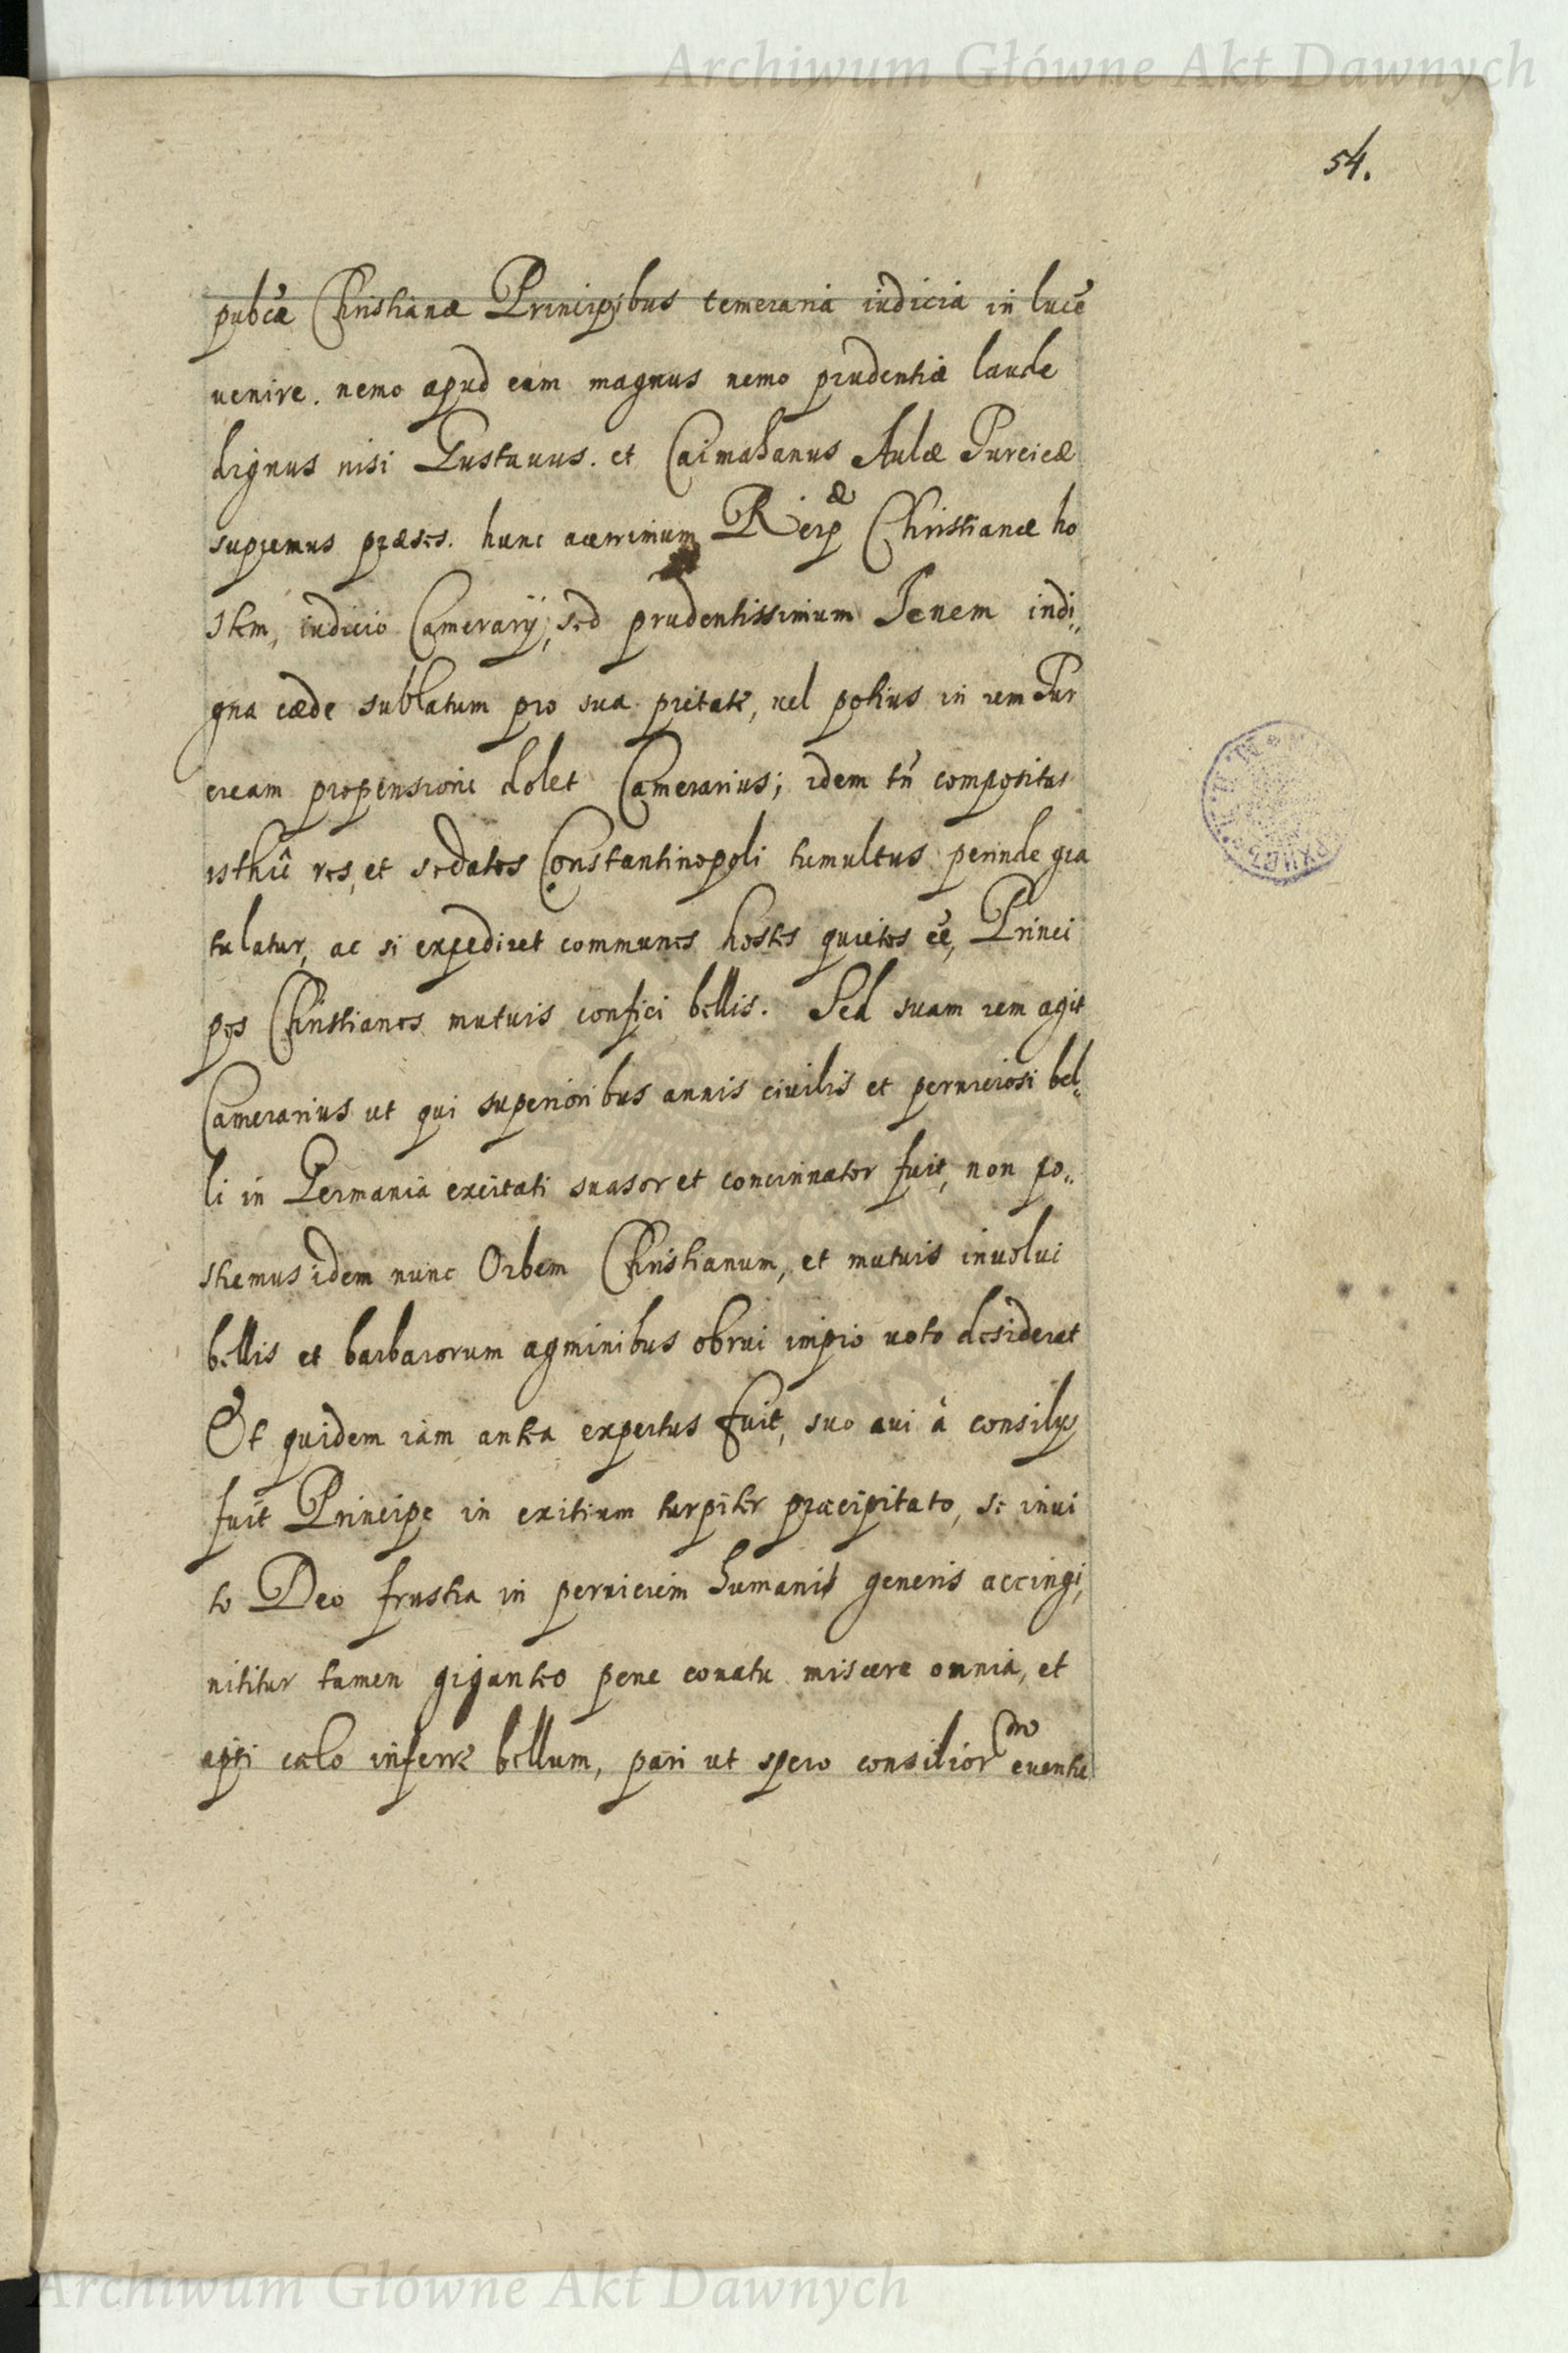 Archiwum Główne Akt Dawnych
54.
pubcæ Christianæ Principibus temeraria iudicia in lucē
uenire. nemo apud eam magnus nemo prudentiæ laude
dignus nisi Gustauus. et Caimahanus Aulæ Turcicæ
supremus præses. hunc acerrimum Reip æ Christianæ ho
stem, iudicio Camerarij, sed prudentissimum Senem indi„
gna cæde sublatum pro sua pietate, uel potius in rem Tur
cicam propensione dolet Camerarius; idem tn̄ compositas
isthic res, et sedatos Constantinopoli tumultus perinde gra
tulatur, ac si expediret communes hostes quietos eē, Princi
pes Christianos mutuis confici bellis. Sed suam rem agit
Camerarius ut qui superioribus annis ciuilis et perniciosi bel„
li in Germania excitati suasor et concinnator fuit, non po„
stremus idem nunc Orbem Christianum, et mutuis inuolui
bellis et barbarorum agminibus obrui impio uoto desiderat
Et quidem iam antea expertus fuit, suo cui à consilijs
fuit Principe in exitium turpiter præcipitato, se inui
to Deo frustra in perniciem humani generis accingi,
nititur tamen giganteo pene conatu miscere omnia, et
ipsi cælo inferre bellum, pari ut spero consilior euentu
Archiwum Główne Akt Dawnych